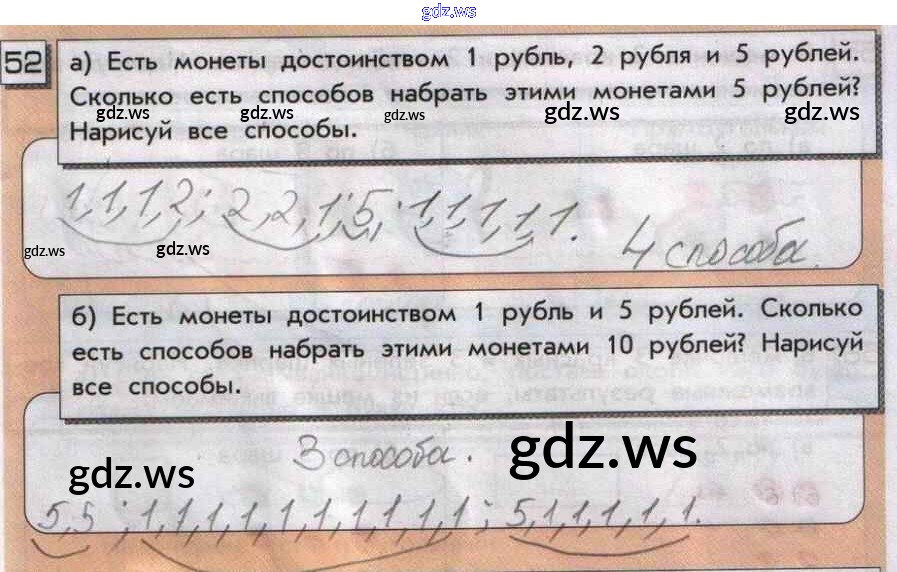 gdz.ws
52 а) Есть монеты достоинством 1 рубль, 2 рубля и 5 рублей.
Сколько есть способов набрать этими монетами 5 рублей?
gdz.ws gdz.ws gdz.ws gdz.ws gdz.ws
Нарисуй все способы.
1,1,1,2; 2,2,1; 5; 1,1,1,1,1.
gdz.ws gdz.ws 4 способа.
б) Есть монеты достоинством 1 рубль и 5 рублей. Сколько
есть способов набрать этими монетами 10 рублей? Нарисуй
все способы.
3 способа.
gdz.ws gdz.ws
5,5; 1,1,1,1,1,1,1,1,1,1; 5,1,1,1,1,1.